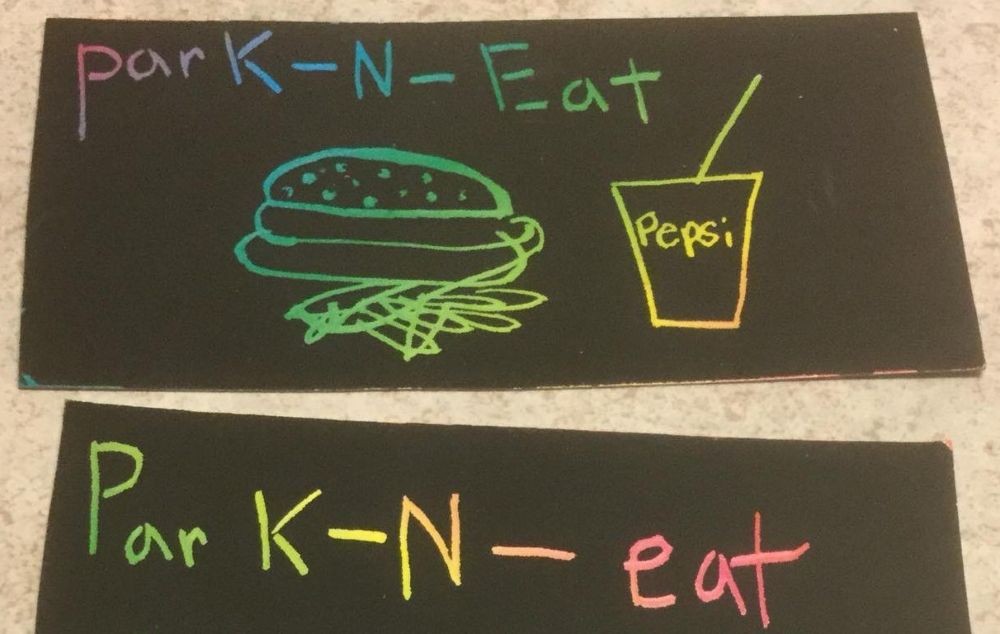 ParK-N-Eat
Pepsi
ParK-N-eat